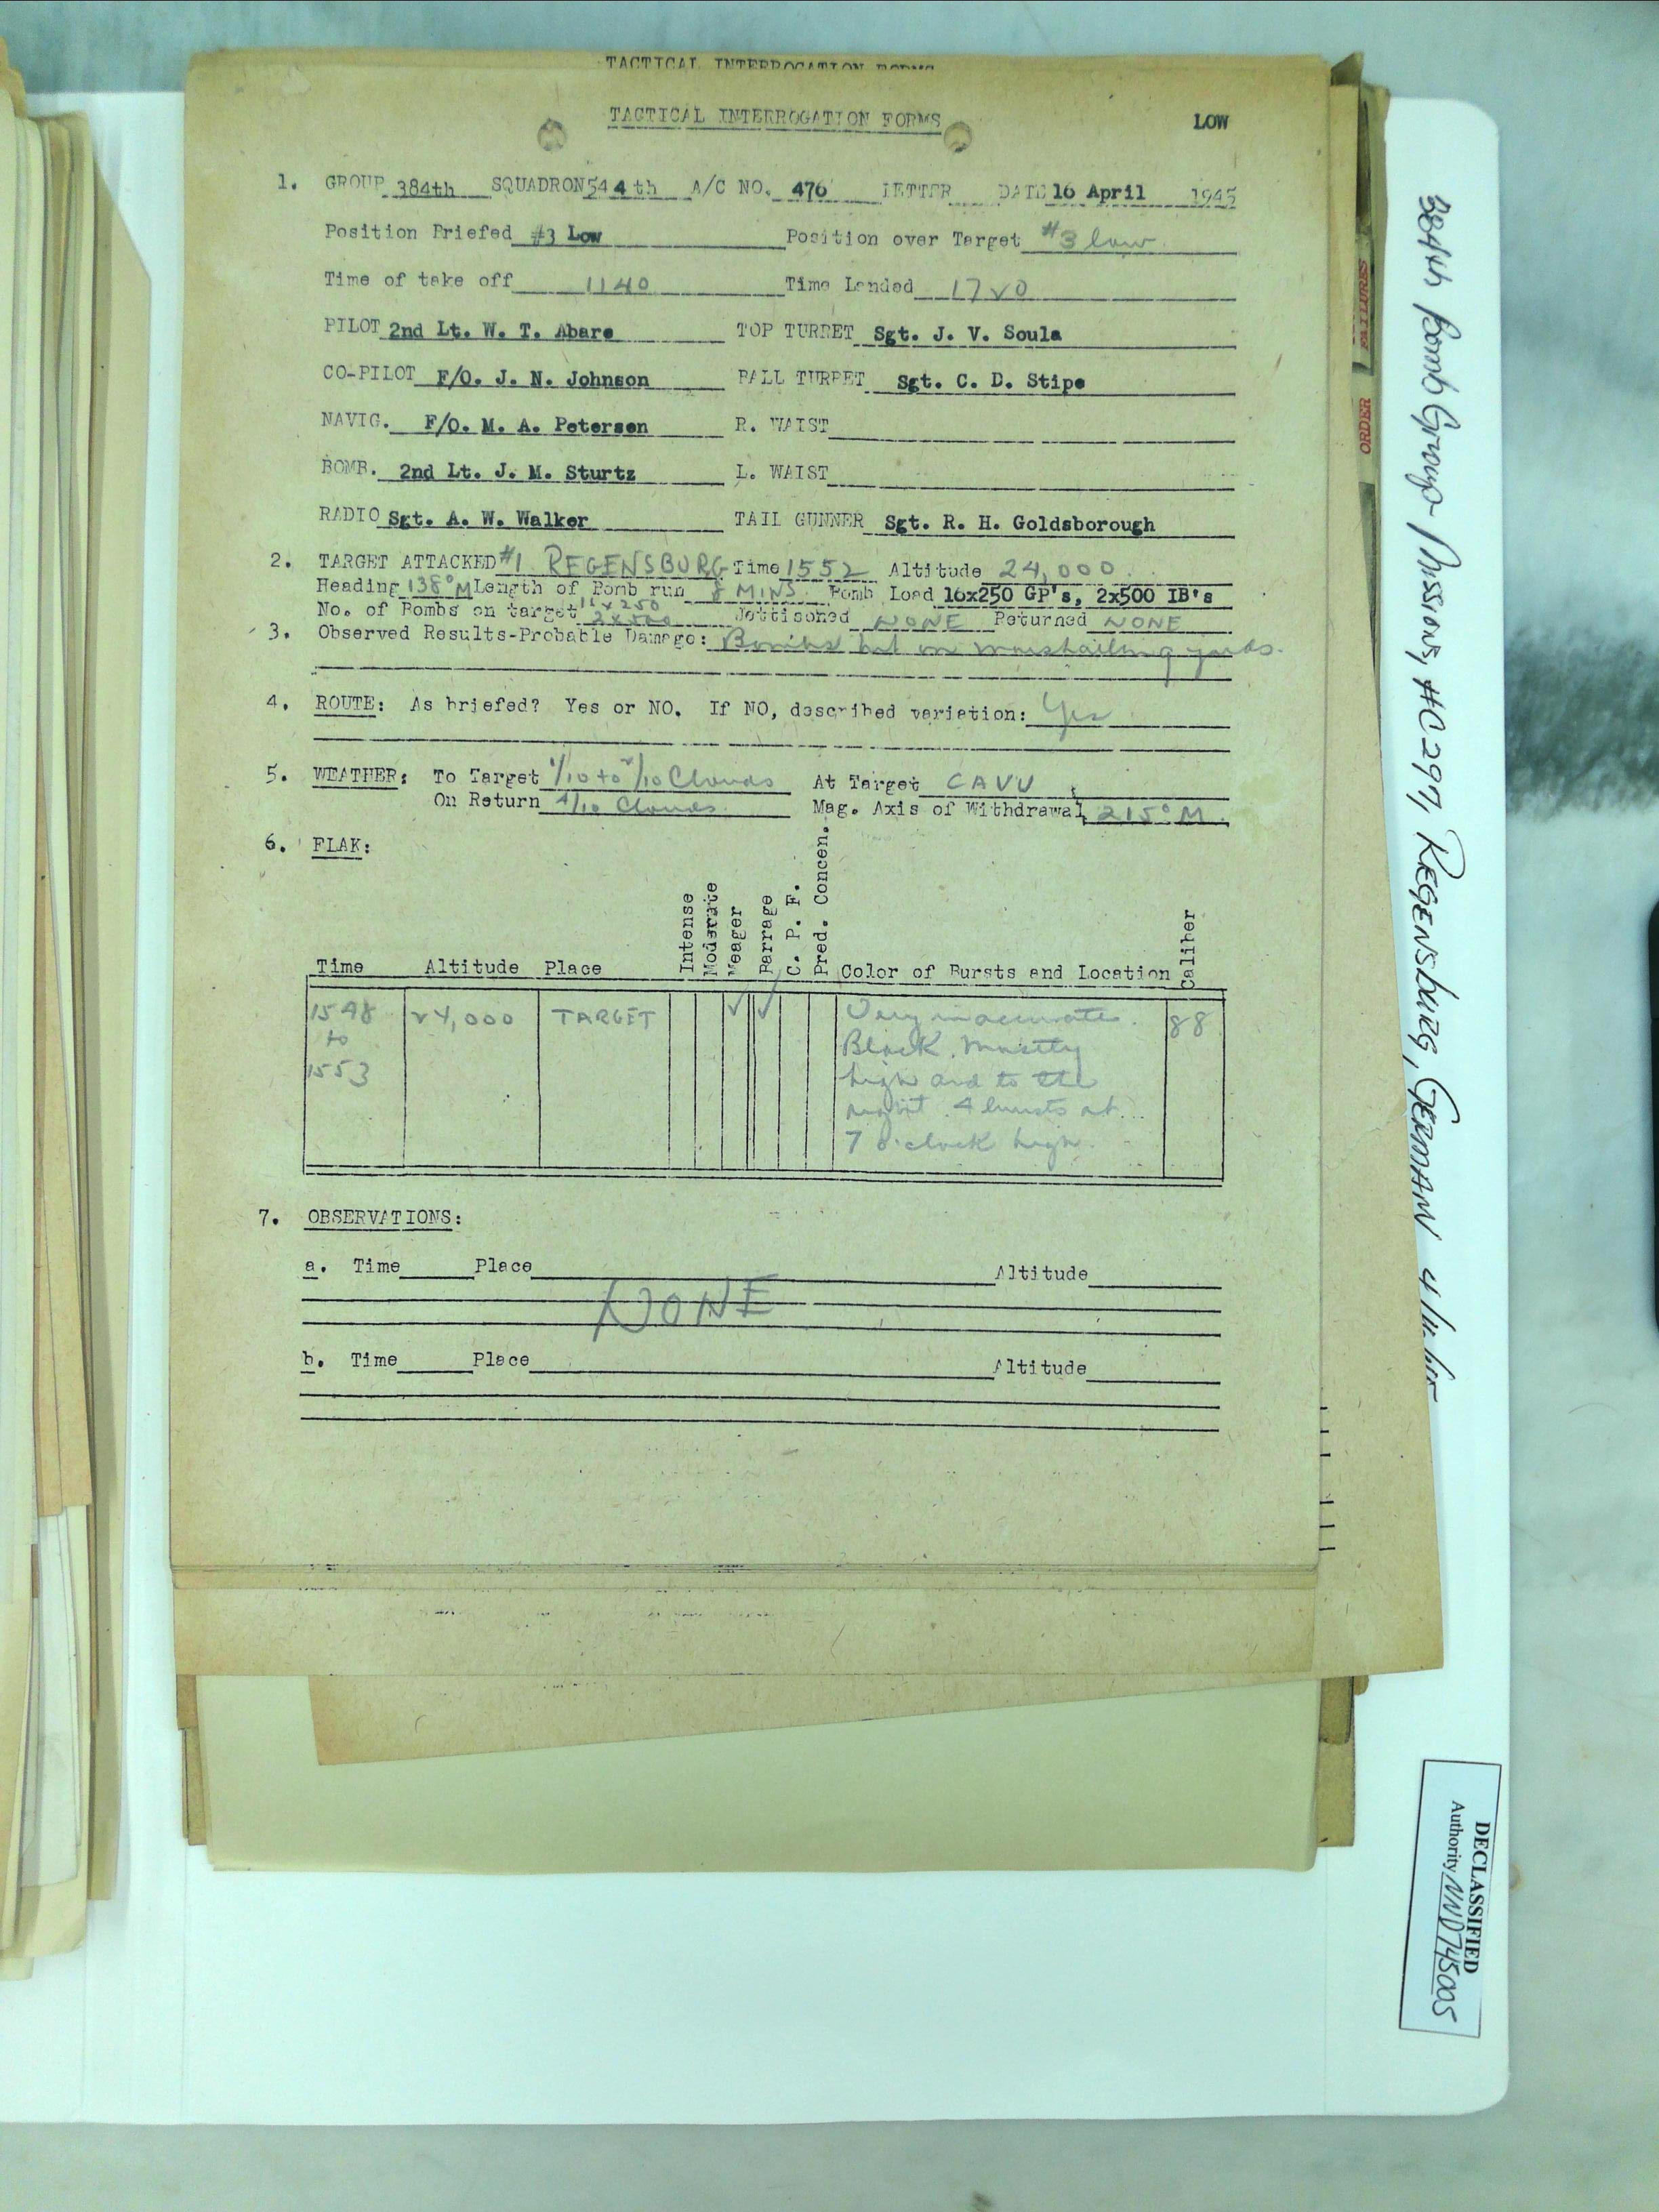 TACTICAL INTERROGATION FORMS
TACTICAL INTERROGATION FORMS LOW
1. GROUP 384th SQUADRON 544th A/C NO. 476 LETTER DATE 16 April 1945
Position Briefed #3 Low Position over Target #3 low
Time of take off 1140 Time Landed 1720
PILOT 2nd Lt. W. T. Abare TOP TURRET Sgt. J. V. Soula
CO-PILOT F/O. J. N. Johnson BALL TURRET Sgt. C. D. Stipe
NAVIG. F/O. M. A. Petersen R. WAIST
BOMB. 2nd Lt. J. M. Sturtz L. WAIST
RADIO Sgt. A. W. Walker TAIL GUNNER Sgt. R. H. Goldsborough
2. TARGET ATTACKED #1 REGENSBURG Time 1552 Altitude 24,000
Heading 138° M Length of Bomb run 8 MINS. Bomb Load 16x250 GP's, 2x500 IB's
No. of Bombs on target 16x250 2x500 Jettisoned NONE Returned NONE
3. Observed Results-Probable Damage: Bombs hit on marshalling yards.
4. ROUTE: As briefed? Yes or NO. If NO, described variation: Yes
5. WEATHER: To Target 1/10 to 2/10 Clouds At Target CAVU
On Return 4/10 Clouds Mag. Axis of Withdrawal 215° M.
6. FLAK:
Time Altitude Place Intense Moderate Meager Barrage C. P. F. Pred. Concen. Color of Bursts and Location Caliber
1548 24,000 TARGET ✓ ✓ Very inaccurate. 88
to Black. Mostly
1553 high and to the
right. 4 bursts at
7 o'clock high.
7. OBSERVATIONS:
a. Time Place Altitude
NONE
b. Time Place Altitude
ORDER FAILURES
384th Bomb Group Missions, #C297, REGENSBURG, GERMANY
DECLASSIFIED
Authority NND745005